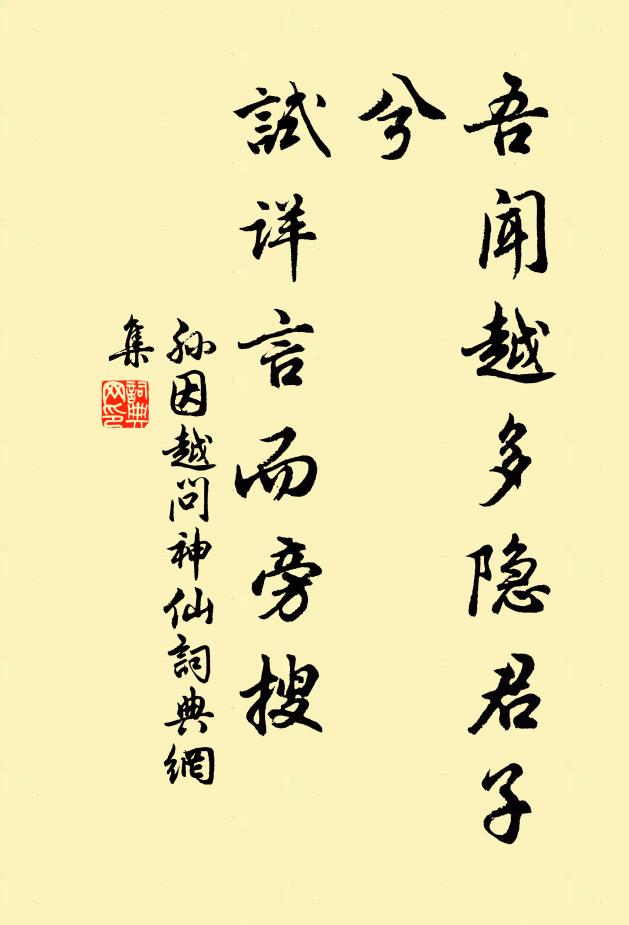 吾聞越多隐君子
兮
試详言而旁搜
孙因越問神仙詞典網
集
詞典
网印